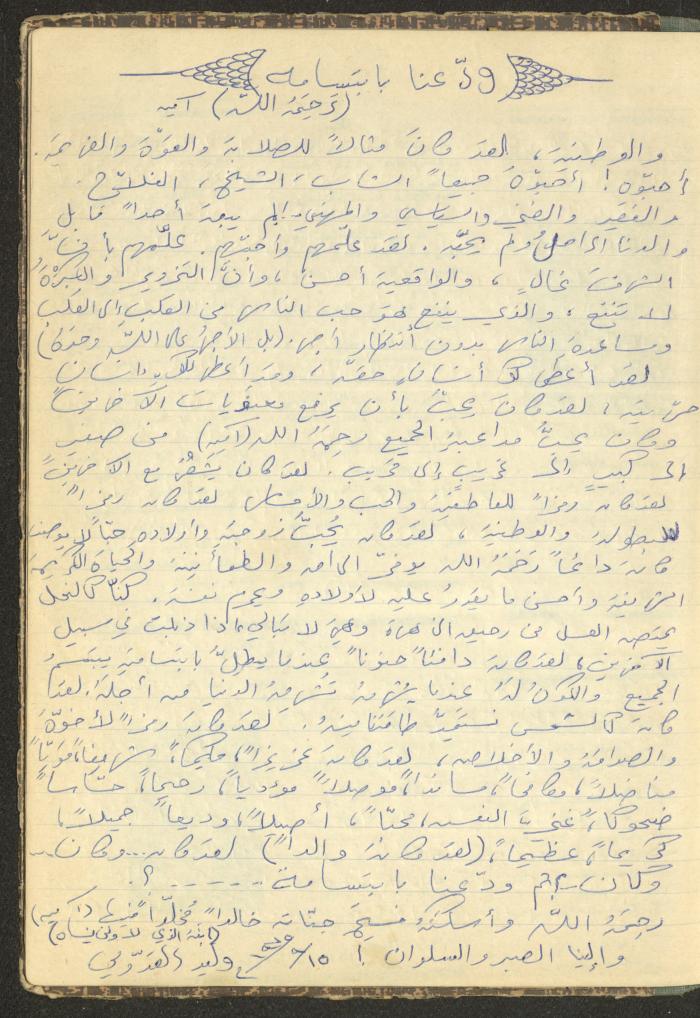 ودّعنا بابتسامه
(رَحِمَهُ اللّه) آمين
والوطنيَة، لقد كانَ مثالاً للصلابةَ والقوّةَ والعزيمَة.
أحبّوه! أحَبّوهَ جميعاً الشاب، الشيخ، الفلاّح.
والفقير والغني والسياسي والمهني.! لم يبقَ أحداً قابل
والدنا الراحلُ ولم يحبَّه. لقد علّمهم وأحبّهم. علّمهم بأنَّ
الشرفَ غالٍ، والواقعية أحسن، وأنَّ التزوير والكبرْةَ
لا تنفع، والذي ينفع هوَ حب الناس من القلبِ إلى القلب
ومساعدة الناس بدون أنتظار أجر. (بل الأجرُ على اللّهِ وحدَهُ)
لقد أعطى كلَّ أنسَانٍ حقَّه، وقد أعطى لكلِّ إنسَانٍ
حرّيتِه، لقد كانَ يحبُّ بأن يرفع معنَويات الآخرين
وكان يحبُّ مداعبةِ الجميع رحِمَهُ الله (آمين) من صغير
إلى كبيرٍ وإلى غريبٍ إلى قريب. لقد كان يشعُرُ مع الآخرين
لقد كان رمزاً للعاطفيّةِ والحب والأخلاص لقد كان رمزاً
للبطولةِ والوطنيةِ، لقد كان يُحبُّ زوجتِه وأولاده حبّاً لا يوصف
كانَ دائماً رَحَمَهُ الله يوفرّ الراحة والطمأنينة والحياة الكريمة
الشريفة وأحسن ما يقدرُ عليهِ لأولادهِ ويحرم نفسَهُ. كنّا كالنحل
يمتص العسل من رحيق الزهرة وهيَ لا تبالي، إذا ذبلت في سبيل
الآخرين، لقد كانَ دافئاً حنوناً عندما يطلُّ بابتسامتِهِ يبتسمُ
الجميع والكونُ لهُ عندما يشرقُ تشرقُ الدنيا من أجلهُ. لقد
كانَ كالشمس نستَمِدُّ طاقتنا مِنهُ. لقد كانَ رمزاً لأخوّةَ
والصداقةَ والأخلاص، لقد كانَ عزيزاً، حكيماً، شريفاً، قويّاً
مناضلاً، مكافحاً، مساندا، موصلاً، مؤدياً، رحيماً، حسّاساً
ضحوكاً، عزيزَ النفس، محبّاً، أصيلاً، وديعاً، جميلاً،
كريماً، عظيماً، (لقد كانَ والداً) لقد كان... وكان...
وكان... ثم ودّعنا بابتسامة ------؟.
رحِمَهُ اللّه وأسكنَهُ فسيحَ جنّاتِه خالداً مُخلّداً فيها (آمين)
(ابنَهُ الذي لا ينساه)
وإلينا الصبر والسلوان! ١٥/٥ وليد